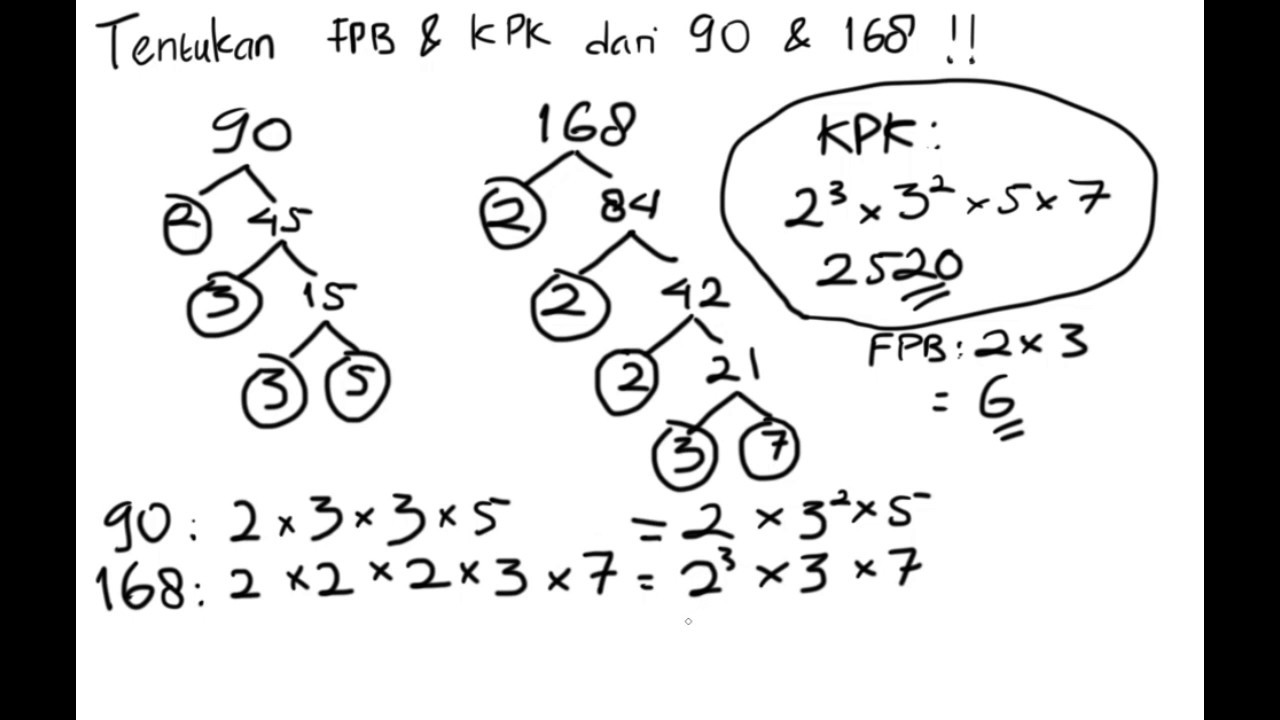 Tentukan FPB & KPK dari 90 & 168 !!
90
2 45
3 15
3 5
168
2 84
2 42
2 21
3 7
KPK:
2³ × 3² × 5 × 7
2520
FPB: 2 × 3
= 6
90 : 2 × 3 × 3 × 5 = 2 × 3² × 5
168 : 2 × 2 × 2 × 3 × 7 = 2³ × 3 × 7